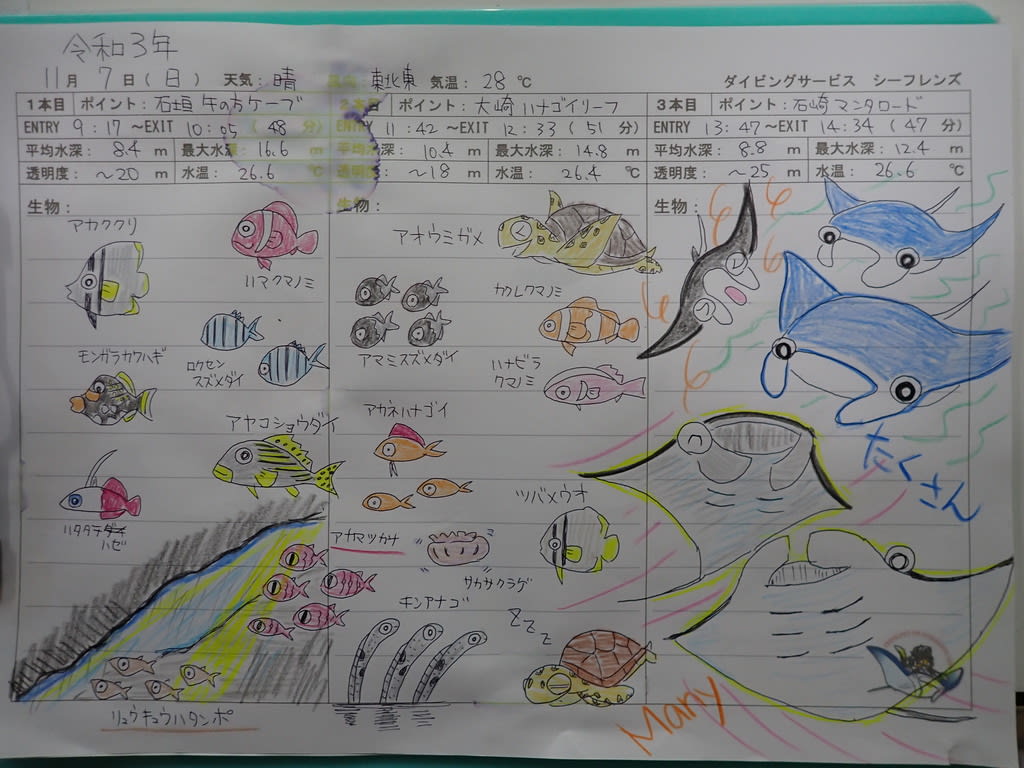 令和3年
11月 7日(日) 天気: 晴 東北東 気温: 28 ℃ ダイビングサービス シーフレンズ
1本目 ポイント: 石垣 牛の方ケーブ
ENTRY 9:17 ~EXIT 10:05 (48 分)
平均水深: 8.4 m 最大水深: 16.6 m
透明度: ~20 m 水温: 26.6 ℃
生物:
アカククリ
ハマクマノミ
モンガラカワハギ
ロクセン
スズメダイ
アヤコショウダイ
ハタタテ
ハゼ
アカマツカサ
リュウキュウハタンポ
2本目 ポイント: 大崎 ハナゴイリーフ
ENTRY 11:42 ~EXIT 12:33 (51 分)
平均水深: 10.4 m 最大水深: 14.8 m
透明度: ~18 m 水温: 26.4 ℃
生物:
アオウミガメ
カクレクマノミ
アマミスズメダイ
ハナビラ
クマノミ
アカネハナゴイ
ツバメウオ
サカサクラゲ
チンアナゴ
zzz
3本目 ポイント: 石崎 マンタロード
ENTRY 13:47 ~EXIT 14:34 (47 分)
平均水深: 8.8 m 最大水深: 12.4 m
透明度: ~25 m 水温: 26.6 ℃
生物:
たくさん